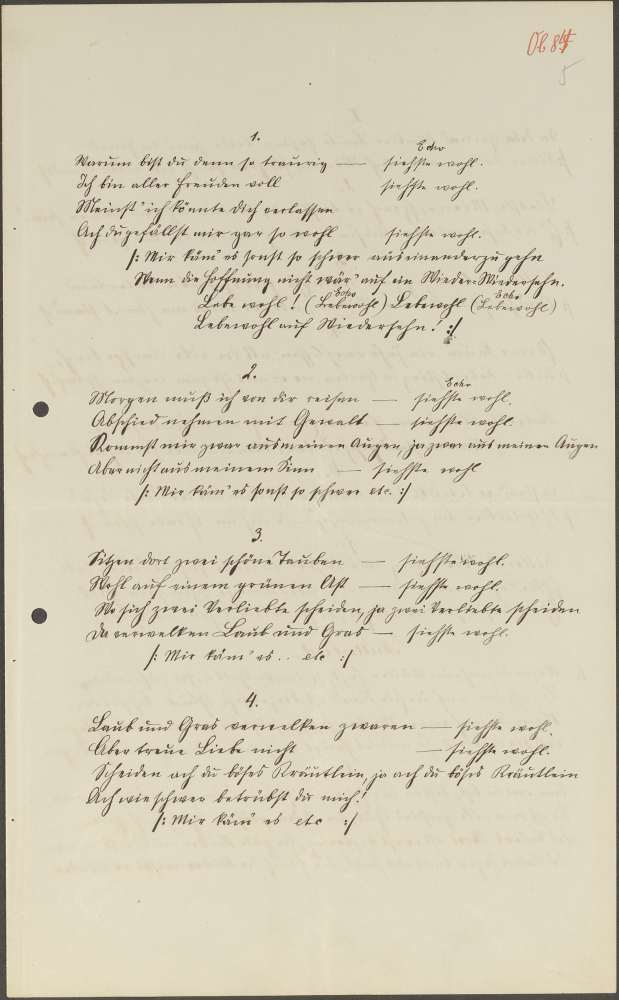 Ob 84
5
1.
Echo
Warum bist du denn so traurig — siehste wohl.
Ich bin aller Freuden voll siehste wohl.
Meinst' ich könnte dich verlassen
Ach du gefällst mir gar so wohl siehste wohl.
/: Mir käm' es sonst so schwer auseinanderzugehn
Wenn die Hoffnung nicht wär' auf ein Wieder-Wiedersehn.
Echo Echo
Lebe wohl! (Lebewohl) Lebewohl (Lebewohl)
Lebewohl auf Wiedersehn! :/
2.
Echo
Morgen muß ich von dir reisen — siehste wohl.
Abschied nehmen mit Gewalt — siehste wohl.
Kommst mir zwar aus meinen Augen, ja zwar aus meinen Augen
Aber nicht aus meinem Sinn — siehste wohl
/: Mir käm' es sonst so schwer etc. :/
3.
Sitzen dort zwei schöne Tauben — siehste wohl.
Wohl auf einem grünen Ast — siehste wohl.
Wo sich zwei Verliebte scheiden, ja zwei Verliebte scheiden
Da verwelken Laub und Gras — siehste wohl.
/: Mir käm' es .. etc :/
4.
Laub und Gras verwelken zwaren — siehste wohl.
Aber treue Liebe nicht — siehste wohl.
Scheiden ach du böses Kräutlein, ja ach du böses Kräutlein
Ach wie schwer betrübst du mich!
/: Mir käm' es etc :/